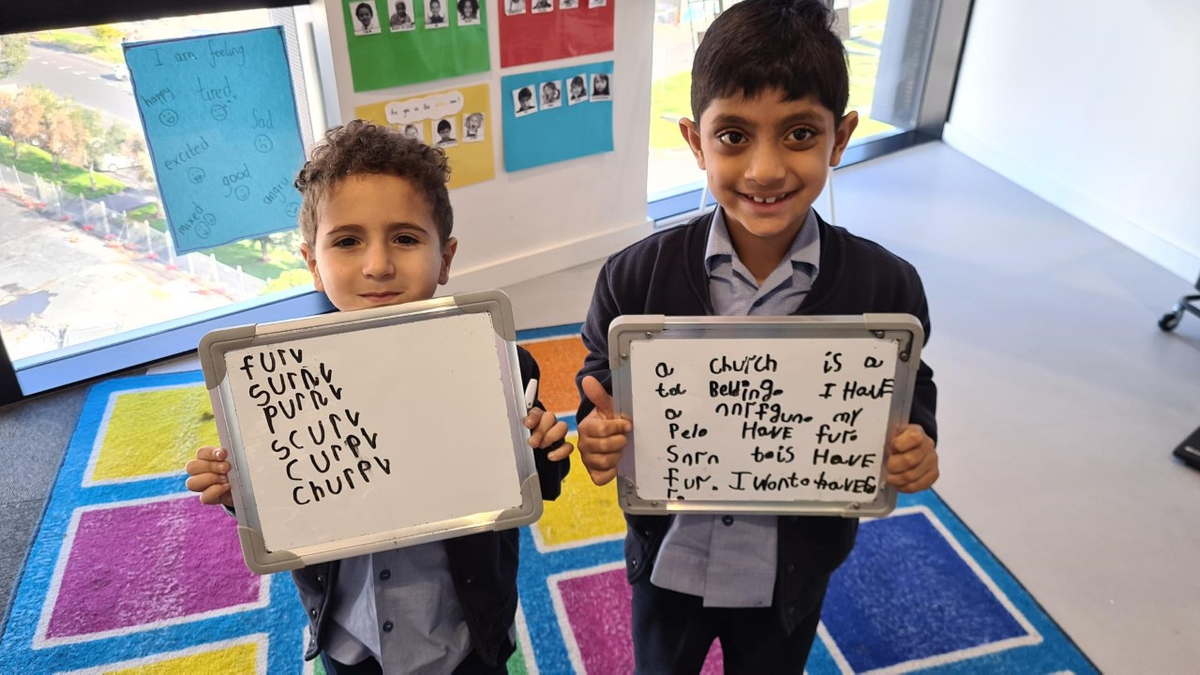 I am feeling
happy
tired.
Sad
excited
good
angry
mixed
fur✓
surn✓
purn✓
scur✓
curp✓
churp✓
a church is a
tol Belding. I HavE
a nnrfgun. my
Pelo HavE fur.
Snrn tois HavE
fur. I Wonto haves